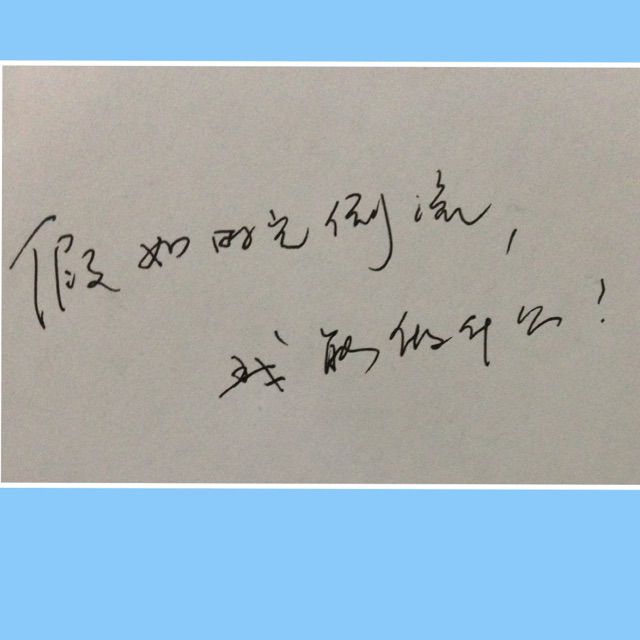 假如时光倒流，
我能做什么！